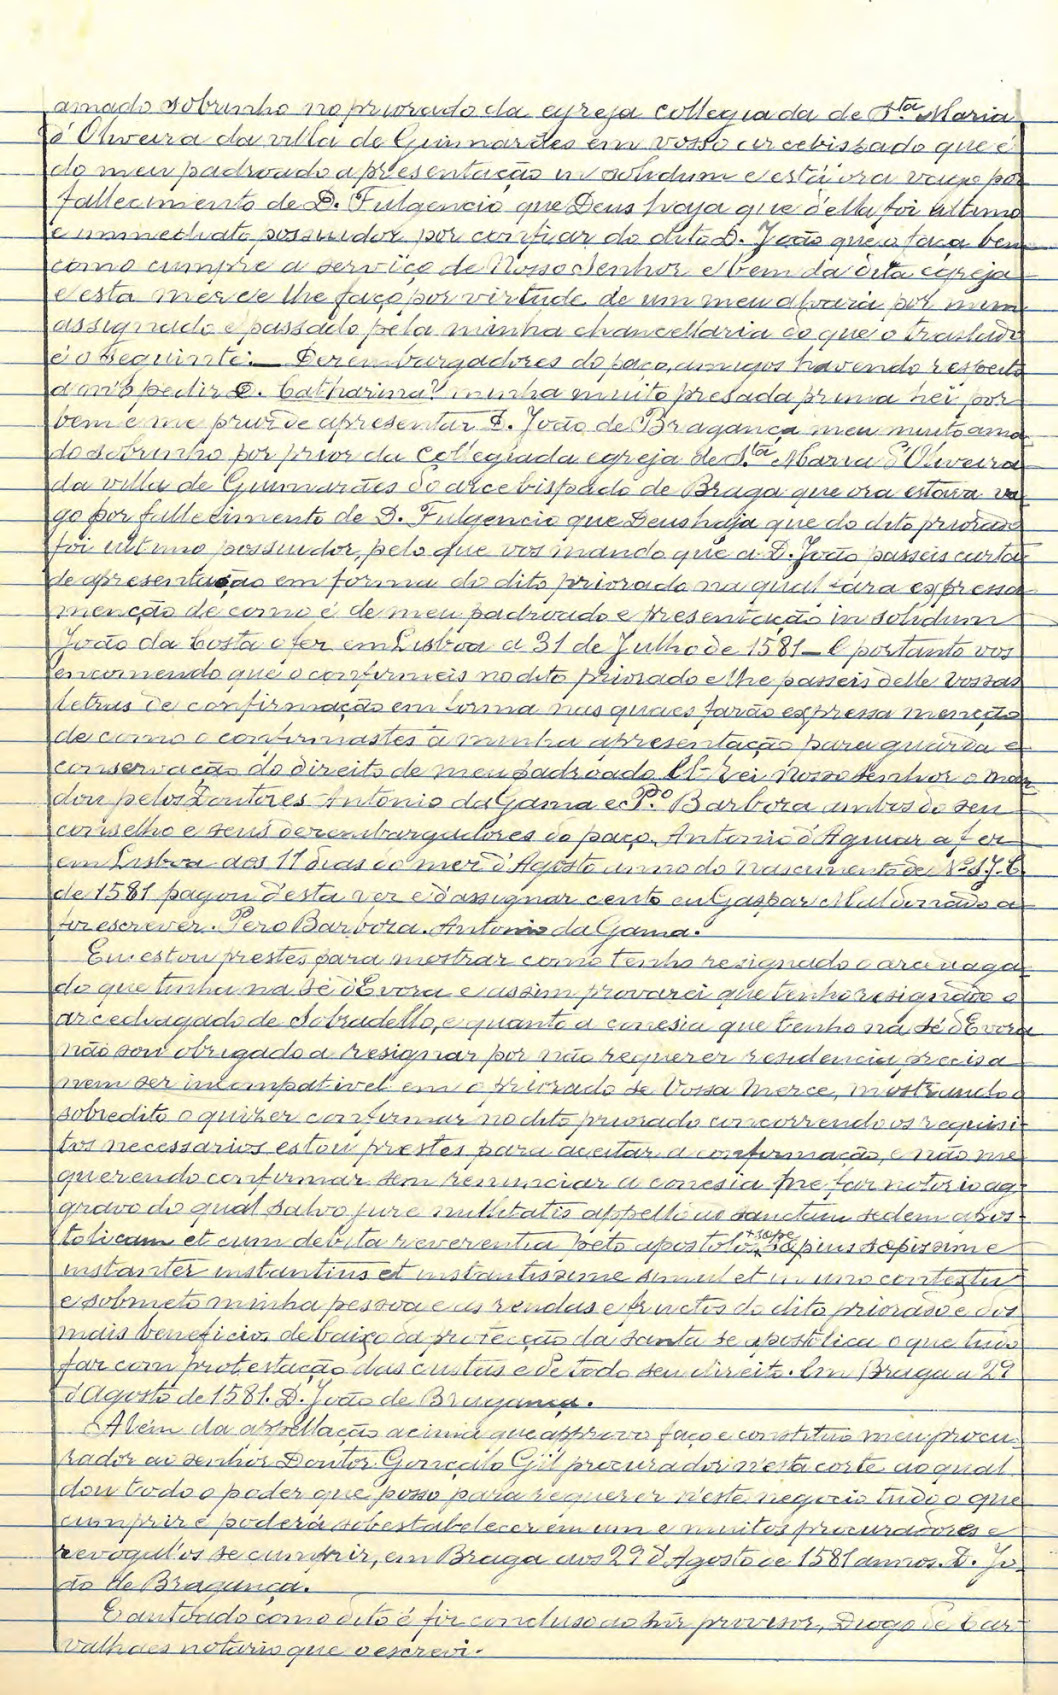 amado sobrinho no priorado da egreja collegiada de Sta Maria
d'Oliveira da villa de Guimarães em vosso arcebispado que é
do meu padroado apresentação in solidum e está ora vago por
fallecimento de D. Fulgencio que Deus haja que d'ella foi ultimo
e immediato possuidor por confiar do dito D. João que o faça bem
como cumpre a serviço de Nosso Senhor e bem da dita egreja
e esta mercê lhe faço por virtude de um meu alvará por mim
assignado e passado pela minha chancellaria do que o traslado
é o seguinte: — Dezembargadores do paço, amigos havendo respeito
a m'o pedir D. Catharina? minha muito presada prima hei por
bem e me praz de apresentar D. João de Bragança meu muito ama-
do sobrinho por prior da Collegiada egreja de Sta Maria d'Oliveira
da villa de Guimarães do arcebispado de Braga que ora estava va-
go por fallecimento de D. Fulgencio que Deus haja que do dito priorado
foi ultimo possuidor, pelo que vos mando que a D. João passeis carta
de apresentação em forma do dito priorado na qual fará expressa
menção de como é de meu padroado e presentação in solidum
João da Costa o fez em Lisboa a 31 de Julho de 1581 — E portanto vos
encomendo que o confirmeis no dito priorado e lhe passeis delle vossas
letras de confirmação em forma nas quaes farão expressa menção
de como o confirmastes á minha apresentação para guarda e
conservação do direito de meu padroado El-Rei Nosso Senhor o man-
dou pelos Doutores Antonio da Gama e Po Barboza ambos do seu
conselho e seus dezembargadores do paço. Antonio d'Aguiar a fez
em Lisboa aos 11 dias do mez d'Agosto anno do Nascimento de N. S. J. C.
de 1581 pagou d'esta vez e d'assignar cento eu Gaspar Maldonado a
fiz escrever. Pero Barboza. Antonio da Gama.
Eu estou prestes para mostrar como tenho resignado o arcediaga-
do que tinha na Sé d'Evora e assim provarei que tenho resignado o
arcediagado de Sobradello, e quanto a conesia que tenho na Sé d'Evora
não sou obrigado a resignar por não requerer residencia precisa
nem ser incompativel em o priorado se Vossa Merce, mostrando o
sobredito o quizer confirmar no dito priorado concorrendo os requisi-
tos necessarios estou prestes para aceitar a confirmação, e não me
querendo confirmar sem renunciar a conesia me faz notorio ag-
gravo do qual salvo jure nullitatis appello ad sanctam sedem apos-
tolicam et cum debita reverentia peto apostolos sæpe sæpius sæpissime
instanter instantius et instantissime simul et in uno contextu
e sobmeto minha pessoa e as rendas e fructos do dito priorado e dos
mais beneficios debaixo da protecção da santa sé apostolica o que tudo
faz com protestação das custas e de todo seu direito. Em Braga a 29
d'Agosto de 1581. D. João de Bragança.
Além da appellação acima que approvo faço e constituo meu procu-
rador ao senhor Doutor Gonçalo Gil procurador n'esta corte ao qual
dou todo o poder que posso para requerer n'este negocio tudo o que
cumprir e poderá sobestabelecer em um e muitos procuradores e
revogal'os se cumprir, em Braga aos 29 d'Agosto de 1581 annos. D. Jo-
ão de Bragança.
E autoado como dito é fiz concluso ao snr provisor, Diogo de Car-
valhaes notario que o escrevi.